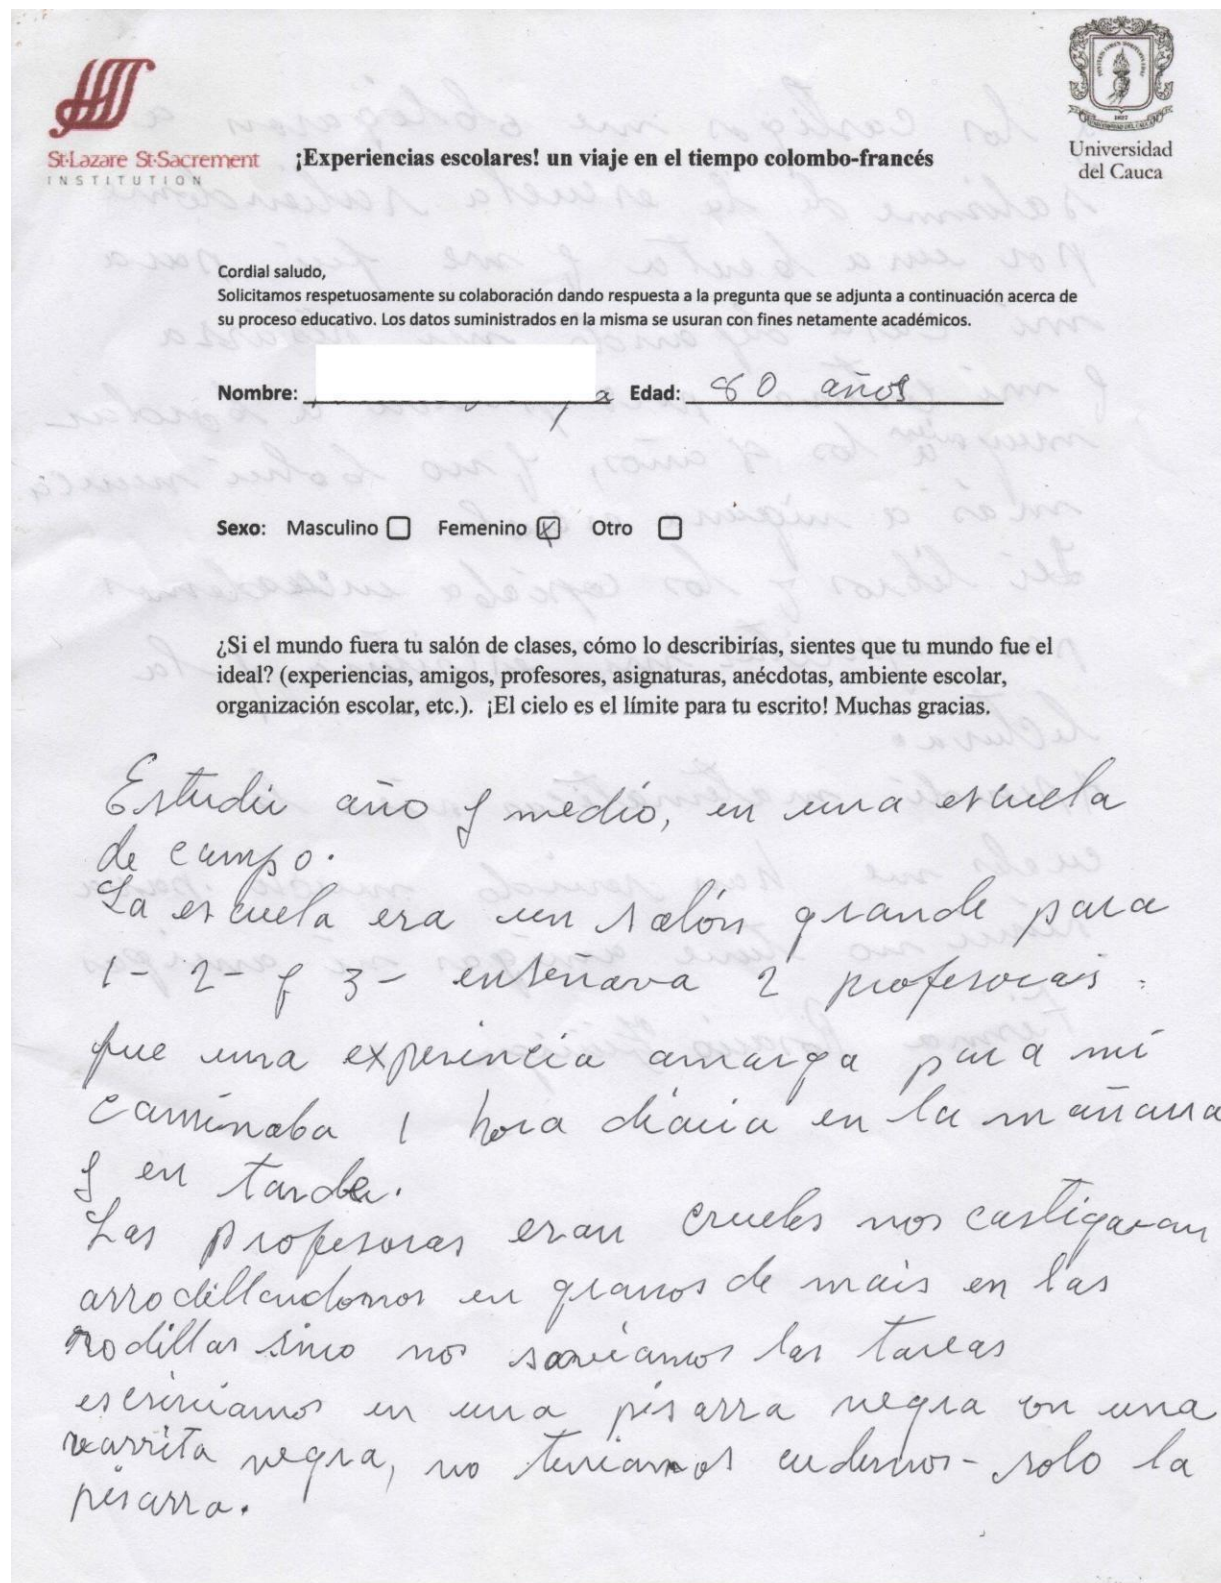 St-Lazare St-Sacrement
INSTITUTION
¡Experiencias escolares! un viaje en el tiempo colombo-francés
Universidad
del Cauca
Cordial saludo,
Solicitamos respetuosamente su colaboración dando respuesta a la pregunta que se adjunta a continuación acerca de
su proceso educativo. Los datos suministrados en la misma se usuran con fines netamente académicos.
Nombre: Edad: 80 años
Sexo: Masculino Femenino Otro
¿Si el mundo fuera tu salón de clases, cómo lo describirías, sientes que tu mundo fue el
ideal? (experiencias, amigos, profesores, asignaturas, anécdotas, ambiente escolar,
organización escolar, etc.). ¡El cielo es el límite para tu escrito! Muchas gracias.
Estudie año y medio, en una escuela
de campo.
La escuela era un salón grande para
1- 2- y 3- enseñava 2 profesoras.
fue una experincia amarga para mi
caminaba 1 hora diaria en la mañana
y en tarde.
Las profesoras eran crueles nos castigavan
arrodillandonos en granos de mais en las
rodillas sino nos saviamos las tareas
escriviamos en una pisarra negra con una
varrita negra, no teniamos cudernos- solo la
pisarra.